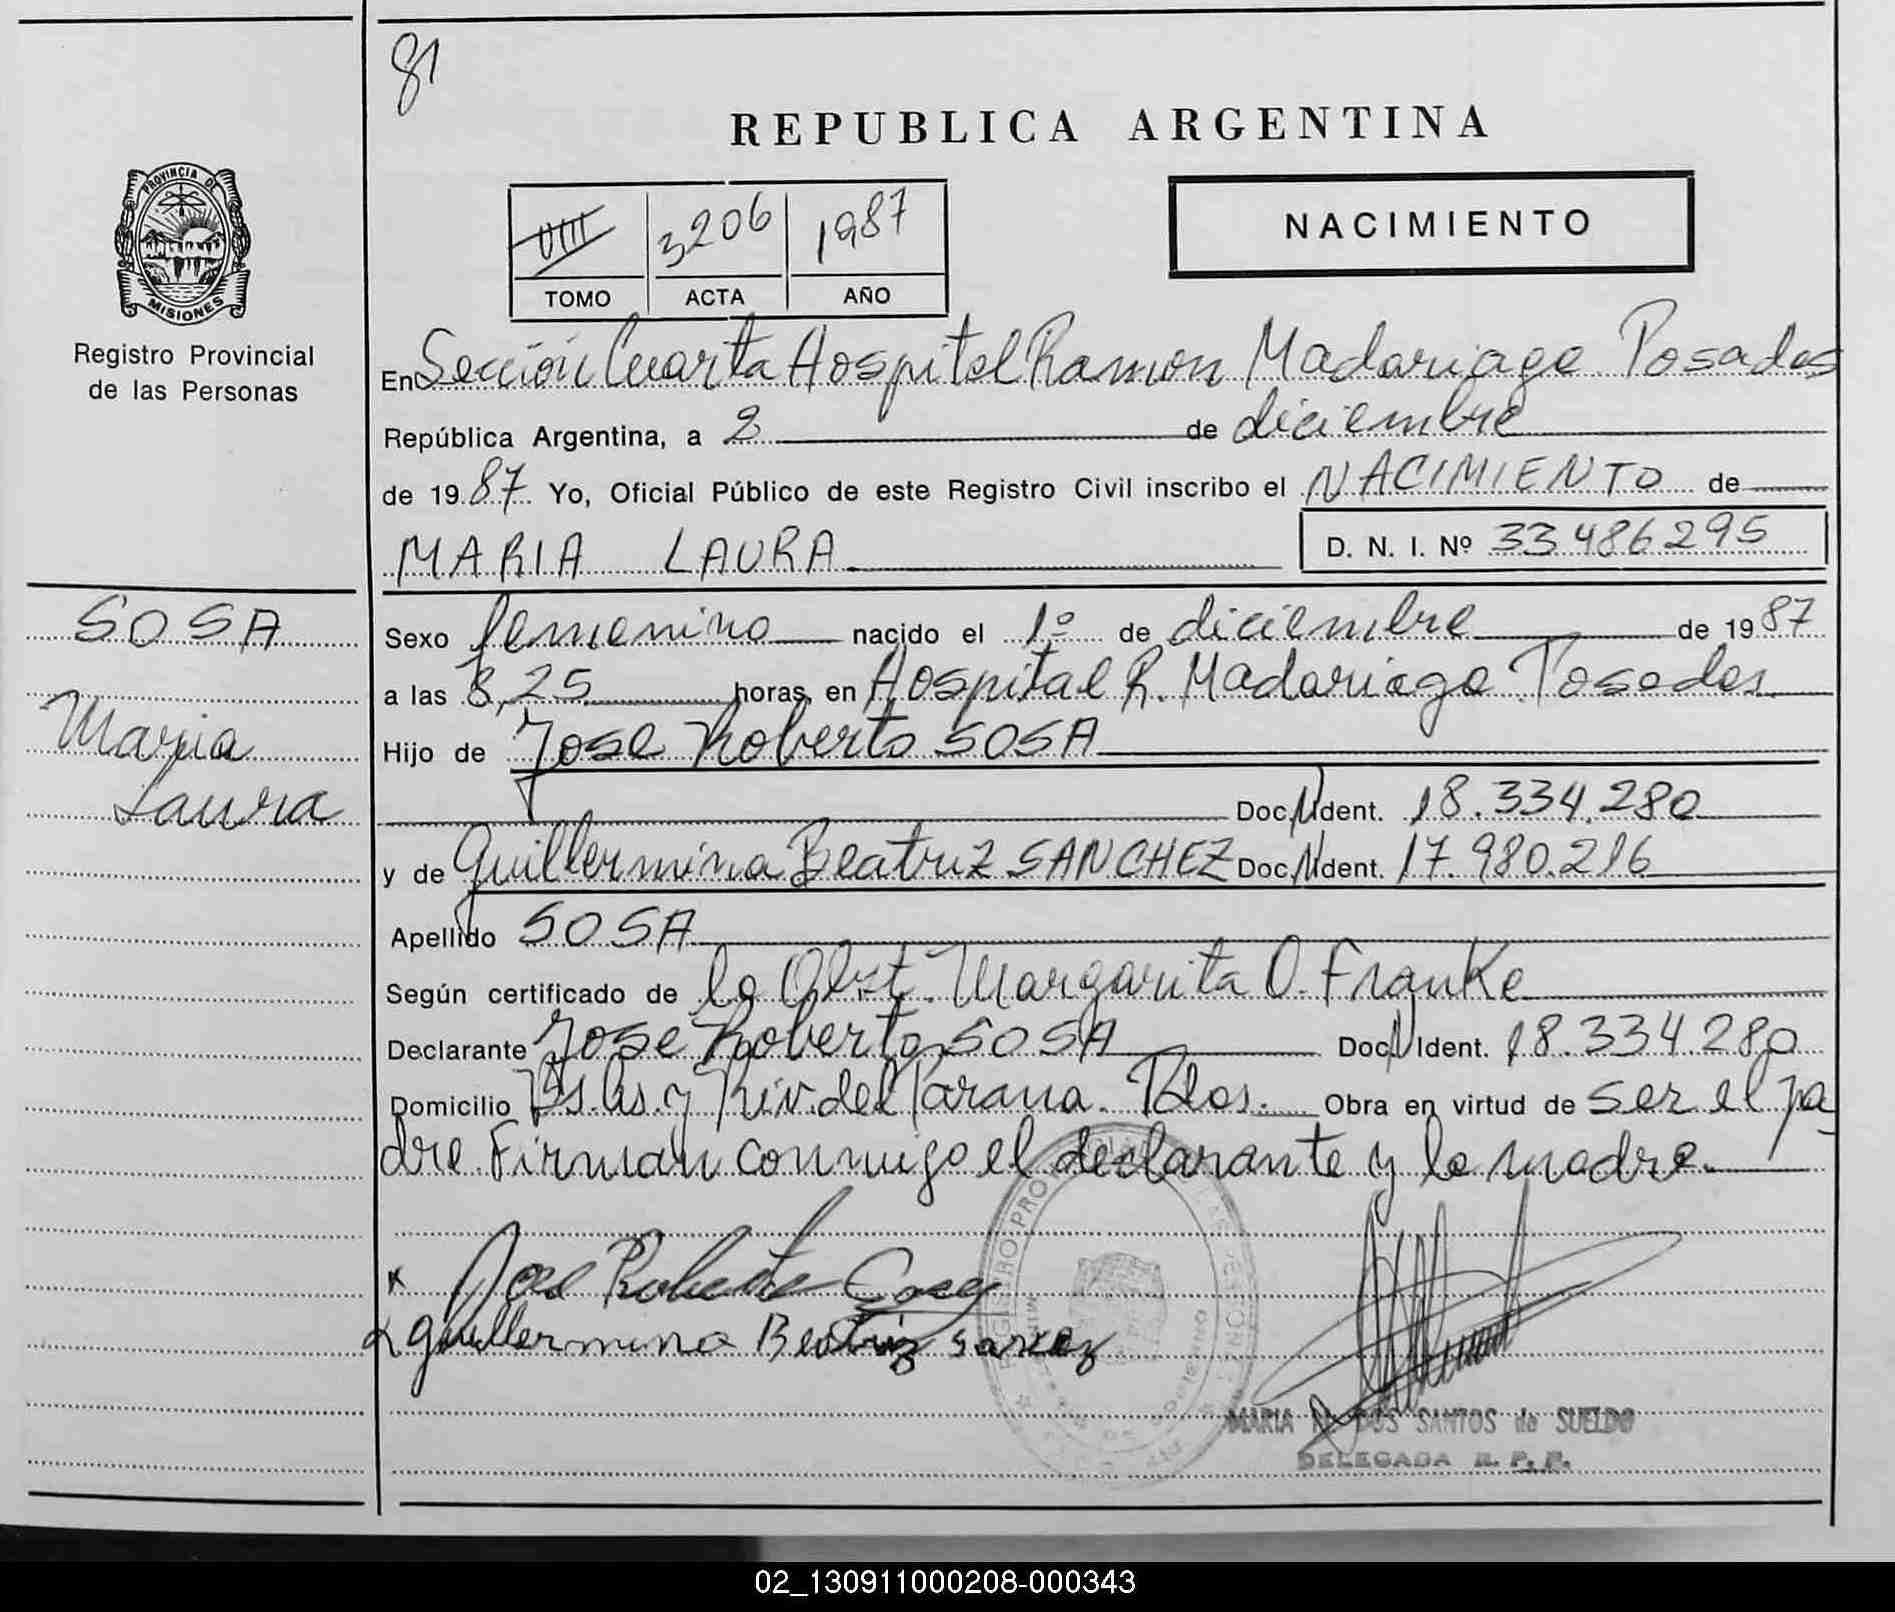 81
REPUBLICA ARGENTINA
PROVINCIA DE
MISIONES
Registro Provincial
de las Personas
VIII 3206 1987
TOMO ACTA AÑO
NACIMIENTO
En Sección Cuarta Hospital Ramon Madariaga Posadas
República Argentina, a 2 de diciembre
de 1987 Yo, Oficial Público de este Registro Civil inscribo el NACIMIENTO de
MARIA LAURA D. N. I. Nº 33486295
SOSA
Maria
Laura
Sexo femenino nacido el 1º de diciembre de 1987
a las 8,25 horas, en Hospital R. Madariaga Posadas
Hijo de Jose Roberto SOSA
Doc. Ident. 18.334.280
y de Guillermina Beatriz SANCHEZ Doc. Ident. 17.980.216
Apellido SOSA
Según certificado de la Obst. Margarita O. Franke
Declarante Jose Roberto SOSA Doc. Ident. 18.334.280
Domicilio Bs. As. y Riv. del Parana. Pdas. Obra en virtud de ser el pa
dre. Firman conmigo el declarante y la madre.
Jose Roberto
Guillermina Beatriz
REGISTRO PROVINCIAL
MARIA DOS SANTOS de SUELDO
DELEGADA R. P. P.
02_130911000208-000343